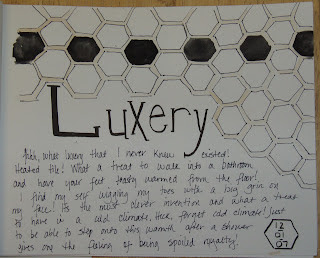 Luxery
Ahh, what luxury that I never knew existed!
Heated tile! What a treat to walk into a bathroom
and have your feet toasty warmed from the floor!
I find my self wigging my toes with a big grin on
my face! Its the most clever invention and what a treat
to have in a cold climate. Heck, forget cold climate! Just
to be able to step onto this warmth after a shower
gives one the feeling of being spoiled royalty!
12
01
07